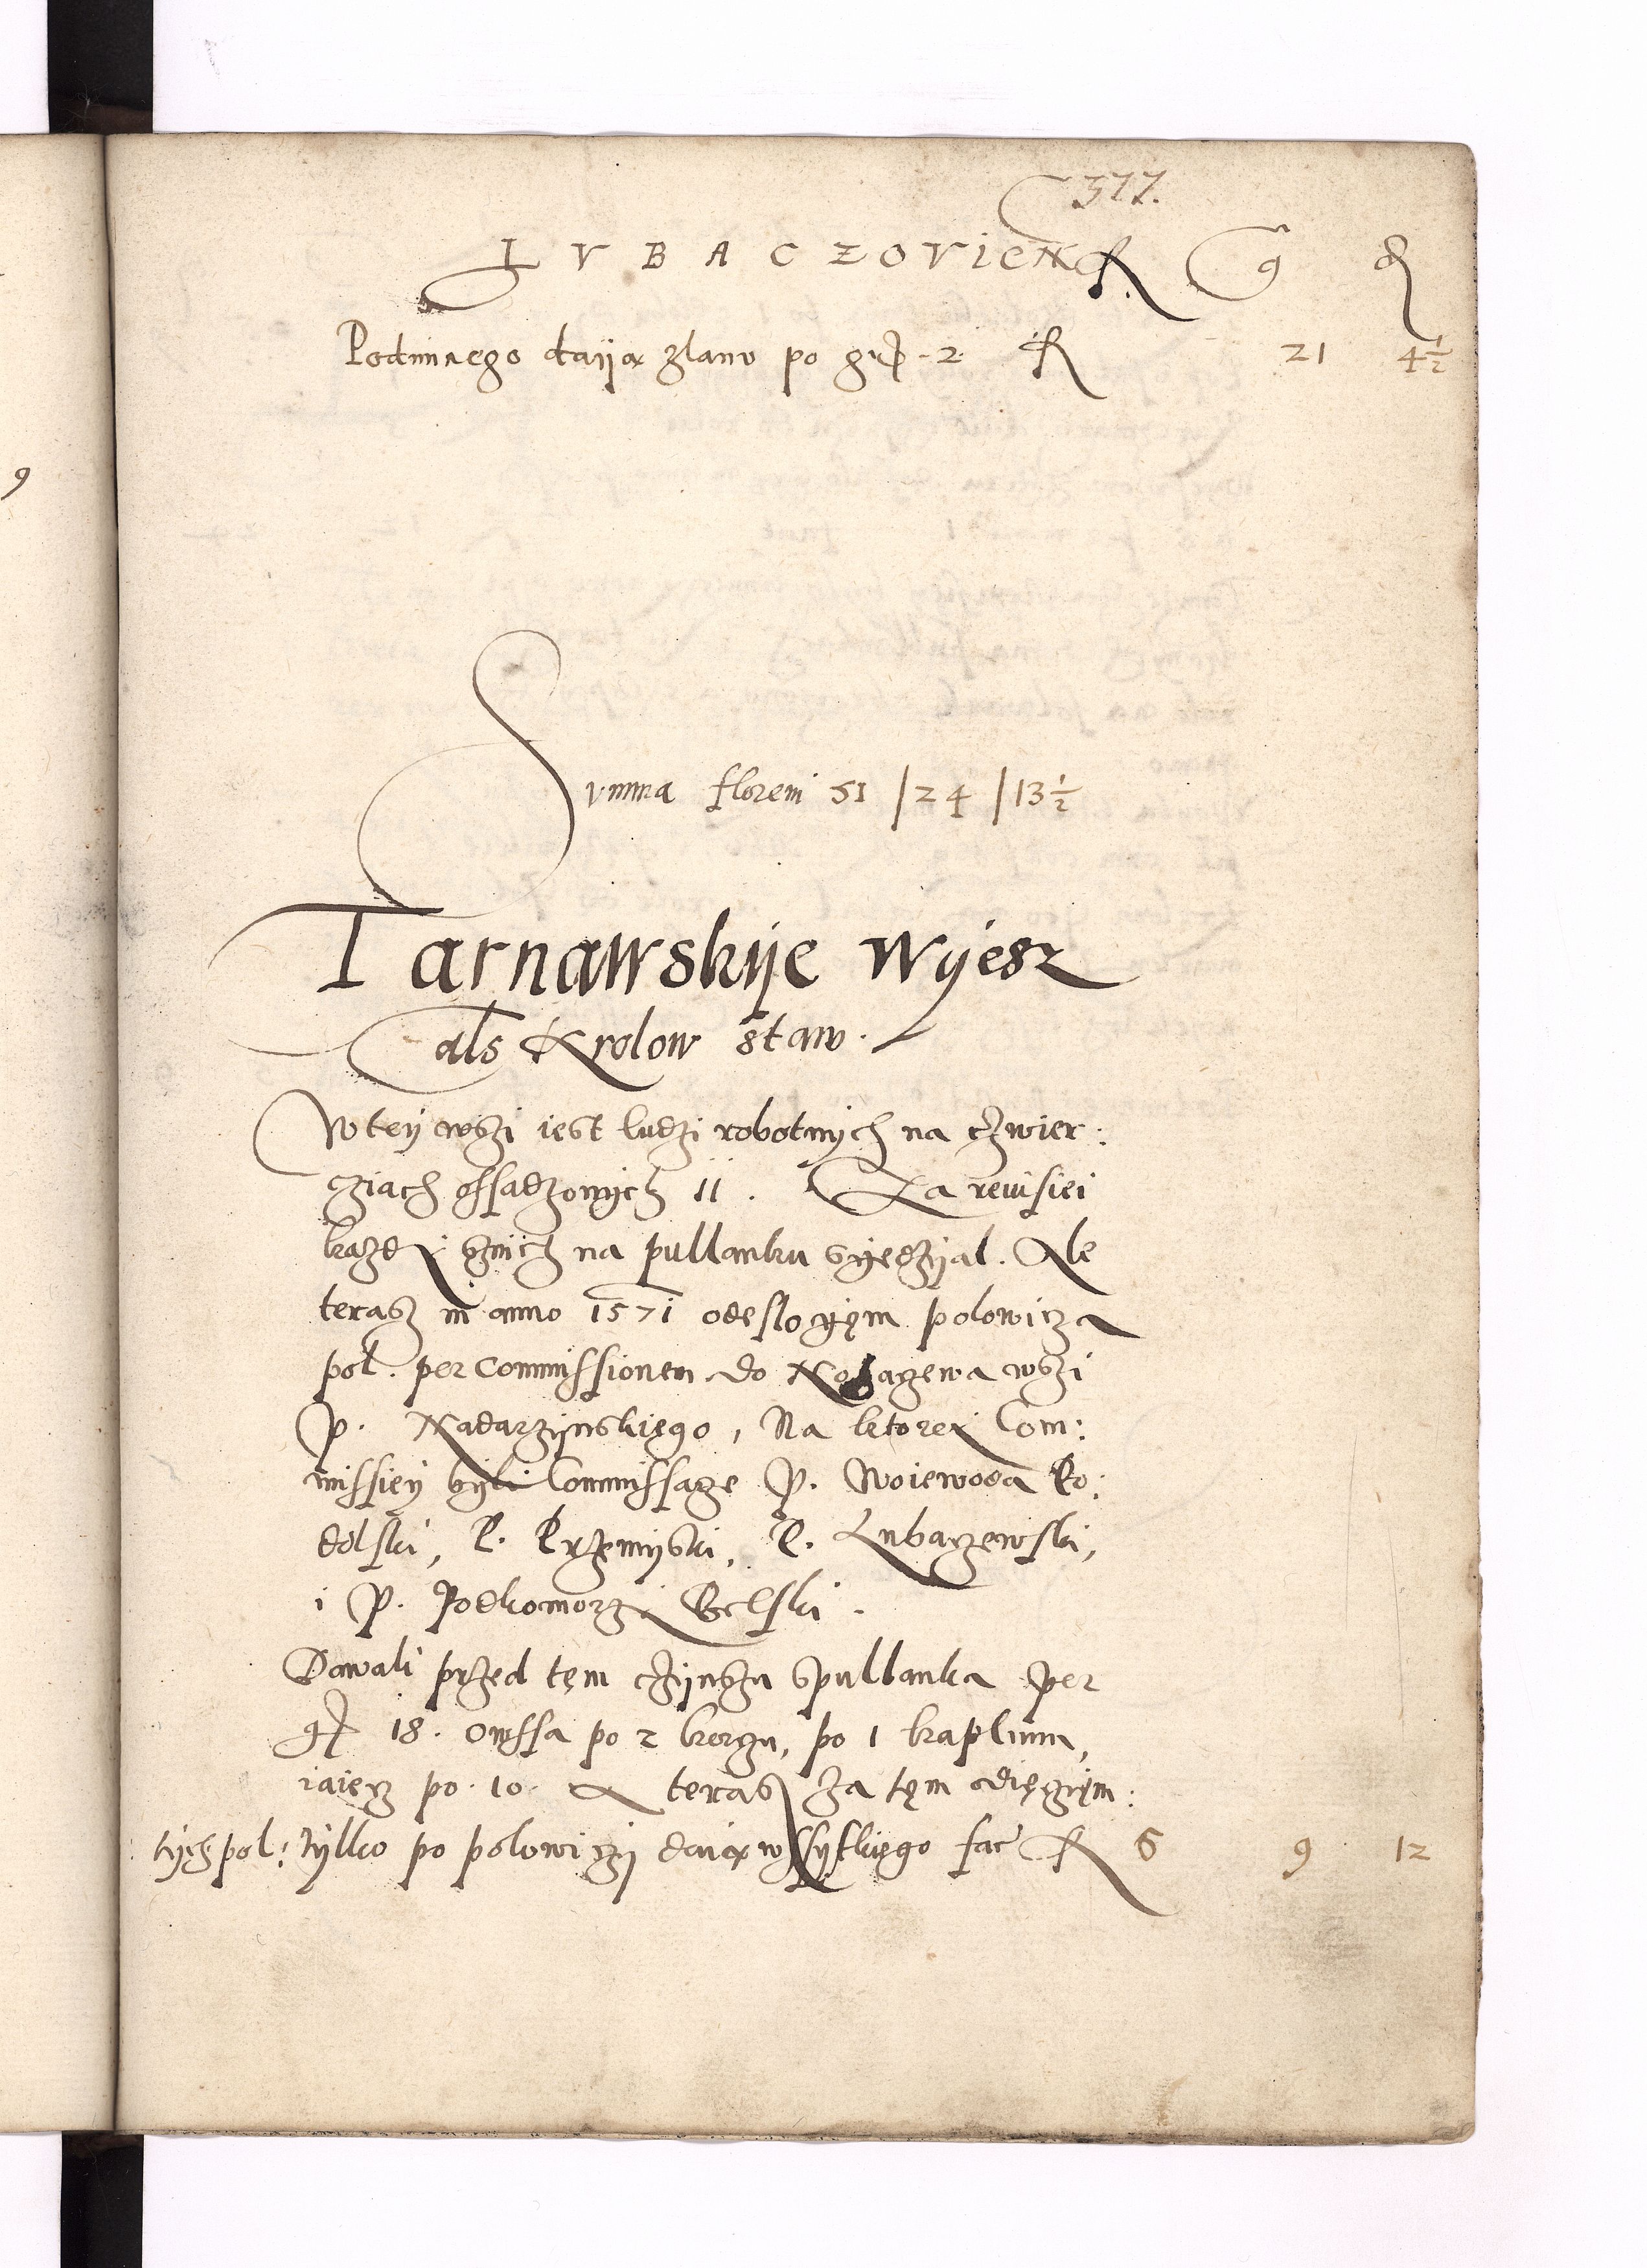 377.
LVBACZOVIEN fl g d
Podimnego daijα zlanu po gr 2 fl 21 4½
Summa floreni 51 / 24 / 13½
Tarnawskije Wyesz
als Krolow staw.
W tey wszi iest ludzi robotnych na czwier:
cziach ossadzonych 11. Za reuisiei
kazdy sznich na pullanku syedzyal. Ale
terasz in anno 1571 odeslo gym polowicza
pol. per Commissionem do wszi
P. Nadarzynskiego, Na ktorey Com:
missiey byli Commissarze P. Woiewoda Po:
dolski, P. Przemyski, P. Lubaczewski,
i P. Podkomorzy Belski.
Dawali przed tem czynszu spullanka per
gr 18. Owssa po 2 korczu, po 1 kaplunu,
iaiecz po 10. A terasz za tęm odięcziem:
tych pol: tylko po polowiczy daiα wssystkiego fac fl 6 9 12
9